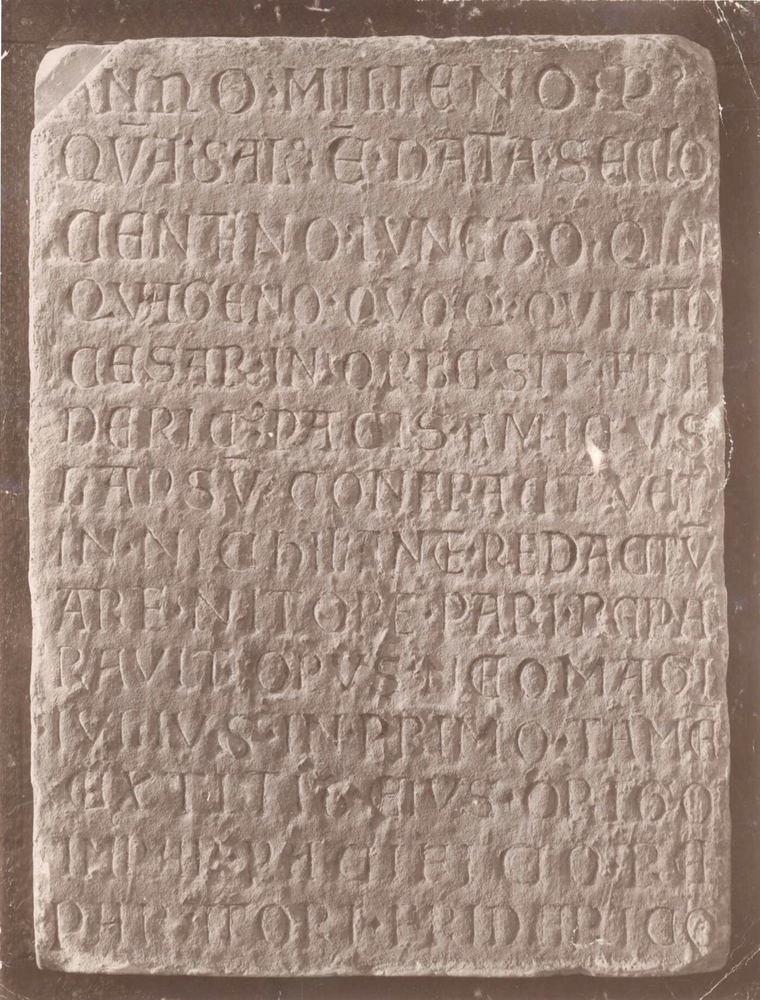 ANNO·MILLENO·P
QVĀ·SAL'·Ē·DATA·SECLO
CENTENO·IVNCGTO·QIN
QVAGENO·QVOQ·QVINTO
CESAR·IN·ORBE·SIT·FRI
DERIC'·PACIS·AMICVS
LAPSV̄·CONFRACTT·VET
IN·NICHIL·ANTE·REDACTV̄
ARE·NITOPE·PARI·REPA
RAVIT·OPVS·NEOMAGI
IVLIVS·IN·PRIMO·TAMĒ
EXTITIT·EIVS·ORIGO
IMPAR·PACIFICO·RE
FRIDERICO